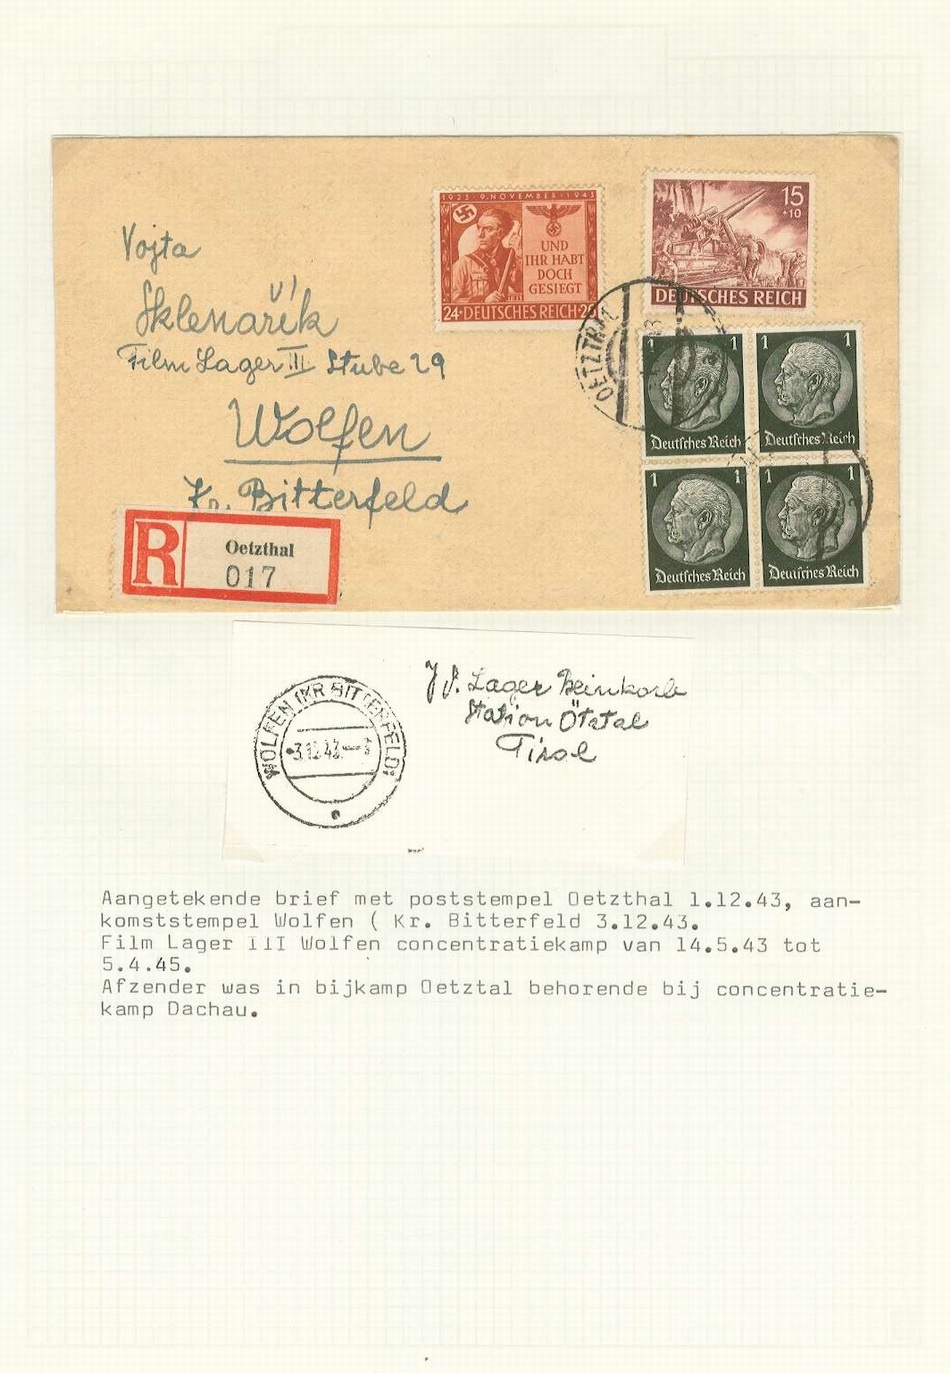 Vojta
Sklenařík
Film Lager III Stube 29
Wolfen
Kr. Bitterfeld
R
Oetzthal
017
1923 · 9. NOVEMBER · 1943
UND
IHR HABT
DOCH
GESIEGT
24 · DEUTSCHES REICH · 26
15
+10
DEUTSCHES REICH
OETZTHAL
1 1
Deutsches Reich
1 1
Deutsches Reich
1 1
Deutsches Reich
1 1
Deutsches Reich
WOLFEN (KR BITTERFELD)
3.12.43
Lager
Station Ötztal
Tirol
Aangetekende brief met poststempel Oetzthal 1.12.43, aan-
komststempel Wolfen ( Kr. Bitterfeld 3.12.43.
Film Lager III Wolfen concentratiekamp van 14.5.43 tot
5.4.45.
Afzender was in bijkamp Oetztal behorende bij concentratie-
kamp Dachau.